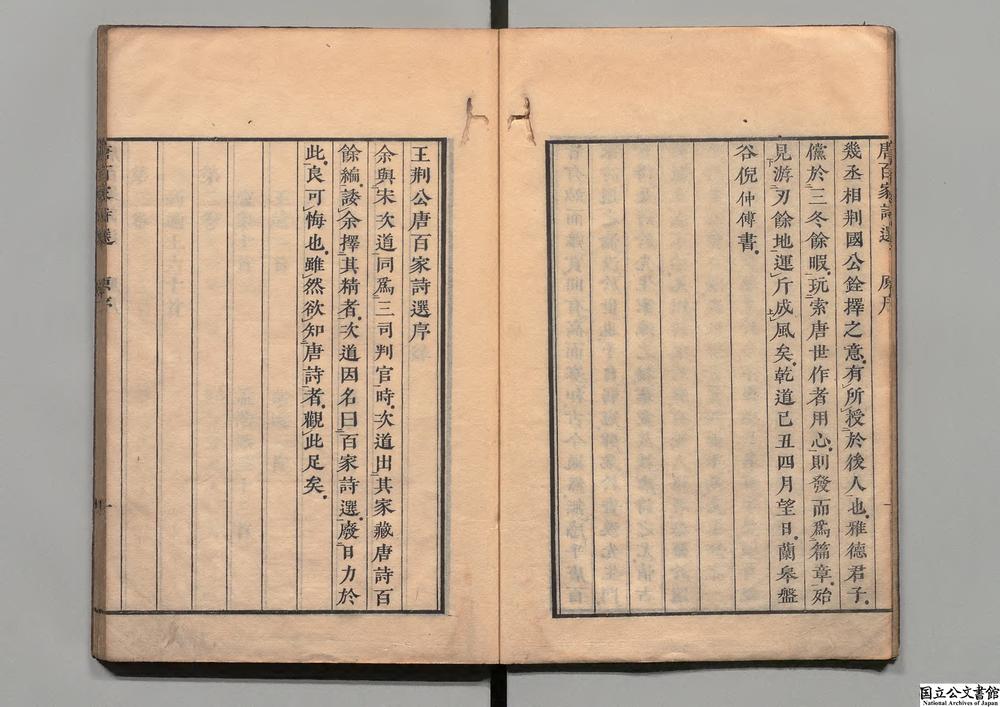 唐百家詩選 原序
幾丞相荆國公銓擇之意有所授於後人也雅德君子
儻於三冬餘暇玩索唐世作者用心則發而爲篇章殆
見游刃餘地運斤成風矣乾道己丑四月望日蘭皋盤
谷倪仲傅書
王荆公唐百家詩選序
余與宋次道同爲三司判官時次道出其家藏唐詩百
餘編諉余擇其精者次道因名曰百家詩選廢日力於
此良可悔也雖然欲知唐詩者觀此足矣
唐百家詩選 原序
一
国立公文書館
National Archives of Japan